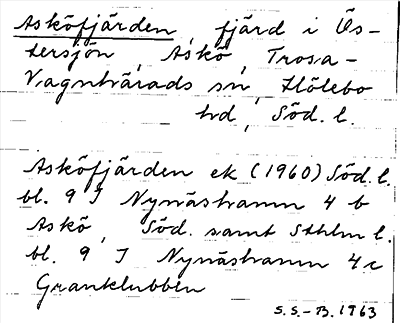 Asköfjärden, fjärd i Ös-
tersjön, Askö, Trosa-
Vagnhärads sn, Hölebo
hd, Söd. l.
Asköfjärden ek (1960) Söd. l.
bl. 9 I Nynäshamn 4 b
Askö, Söd. samt Sthlm l.
bl. 9 I Nynäshamn 4 c
Granklubben
S.S.-B. 1963